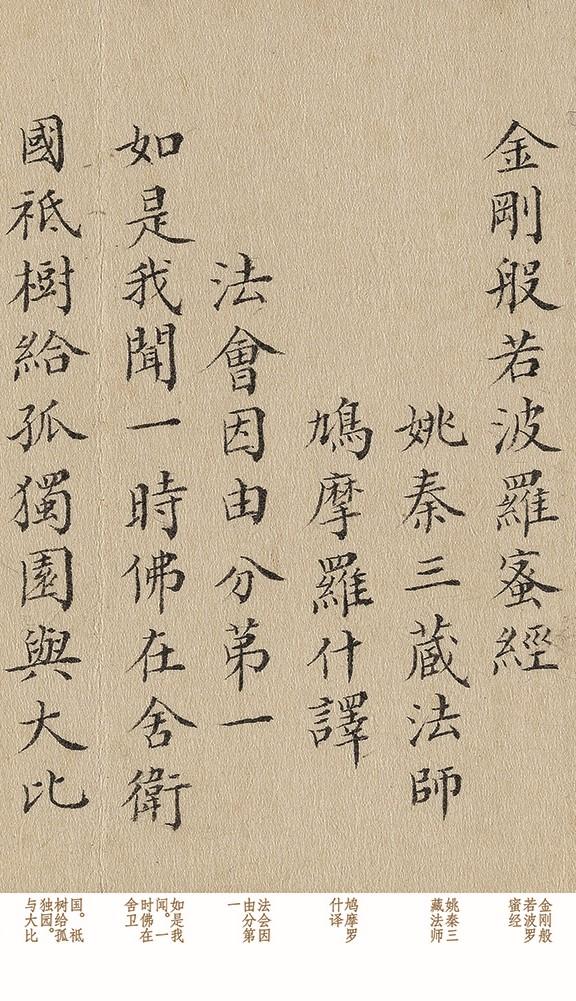 金剛般若波羅蜜經
姚秦三藏法師
鳩摩羅什譯
法會因由分第一
如是我聞一時佛在舍衛
國祇樹給孤獨園與大比
金刚般
若波罗
蜜经
姚秦三
藏法师
鸠摩罗
什译
法会因
由分第
一
如是我
闻。一
时佛在
舍卫
国。祇
树给孤
独园。
与大比